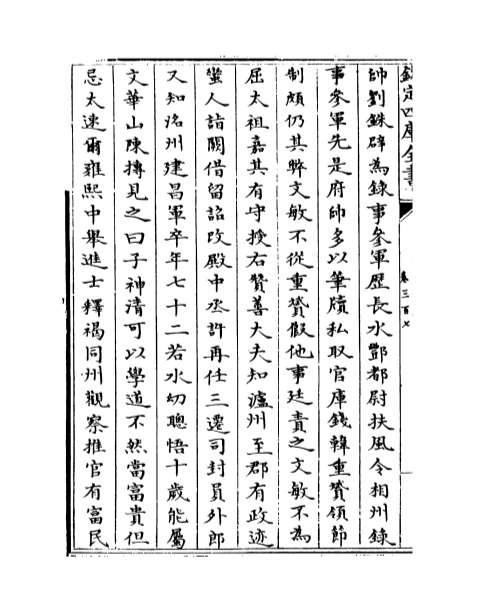 欽定四庫全書
卷三百七
帥劉銖辟為錄事參軍歷長水酆都尉扶風令相州錄
事參軍先是府帥多以筆牘私取官庫錢韓重贇領節
制頗仍其弊文敏不從重贇假他事廷責之文敏不為
屈太祖嘉其有守授右贊善大夫知瀘州至郡有政迹
蠻人詣闕借留詔改殿中丞許再任三遷司封員外郎
又知洺州建昌軍卒年七十二若水幼聰悟十歲能屬
文華山陳摶見之曰子神清可以學道不然當富貴但
忌太速爾雍熙中舉進士釋褐同州觀察推官有富民